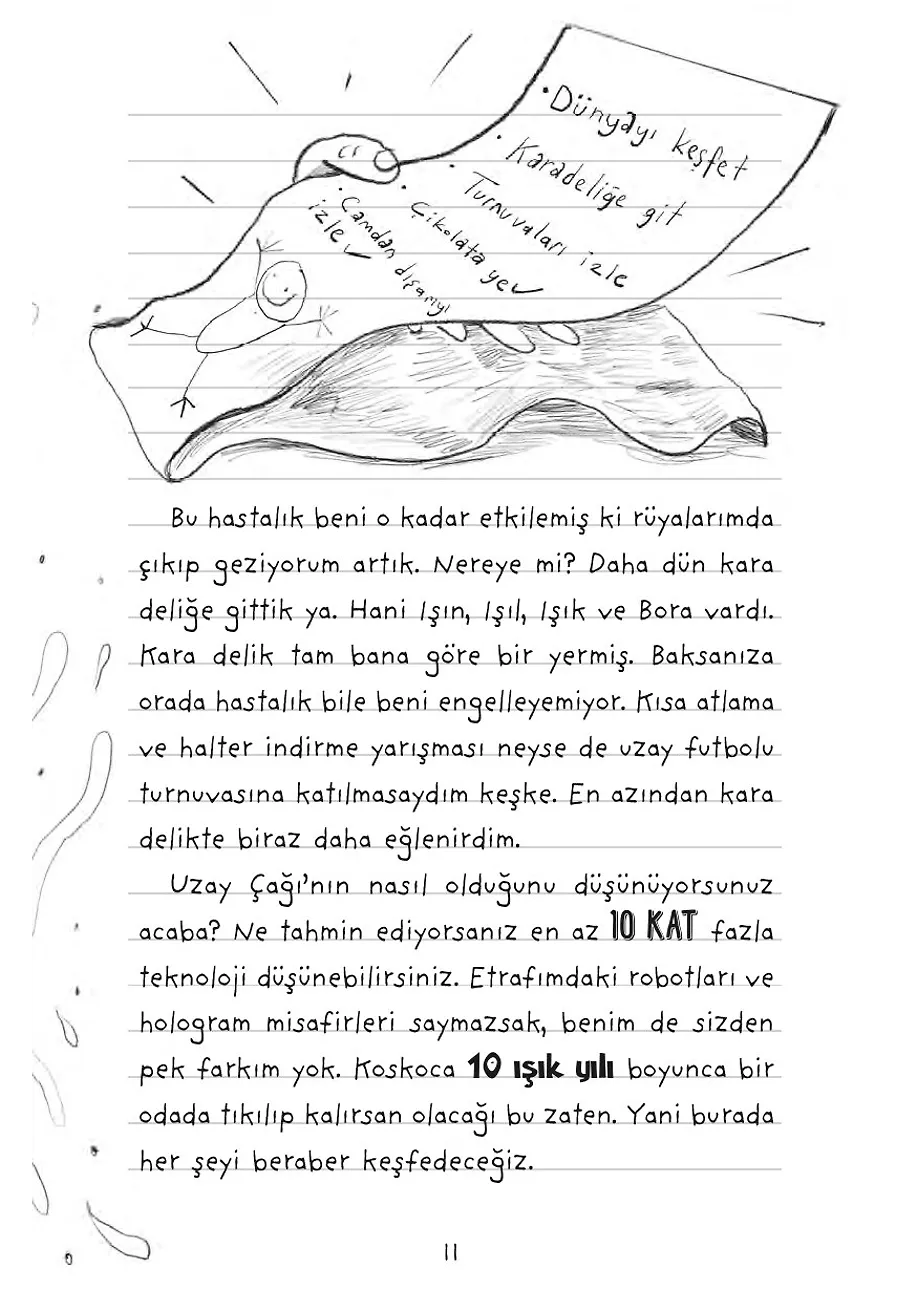 • Dünyayı keşfet
• Karadeliğe git
• Turnuvaları izle
• Çikolata ye ✓
• Camdan dışarıyı
izle ✓
Bu hastalık beni o kadar etkilemiş ki rüyalarımda
çıkıp geziyorum artık. Nereye mi? Daha dün kara
deliğe gittik ya. Hani Işın, Işıl, Işık ve Bora vardı.
Kara delik tam bana göre bir yermiş. Baksanıza
orada hastalık bile beni engelleyemiyor. Kısa atlama
ve halter indirme yarışması neyse de uzay futbolu
turnuvasına katılmasaydım keşke. En azından kara
delikte biraz daha eğlenirdim.
Uzay Çağı'nın nasıl olduğunu düşünüyorsunuz
acaba? Ne tahmin ediyorsanız en az 10 KAT fazla
teknoloji düşünebilirsiniz. Etrafımdaki robotları ve
hologram misafirleri saymazsak, benim de sizden
pek farkım yok. Koskoca 10 ışık yılı boyunca bir
odada tıkılıp kalırsan olacağı bu zaten. Yani burada
her şeyi beraber keşfedeceğiz.
11